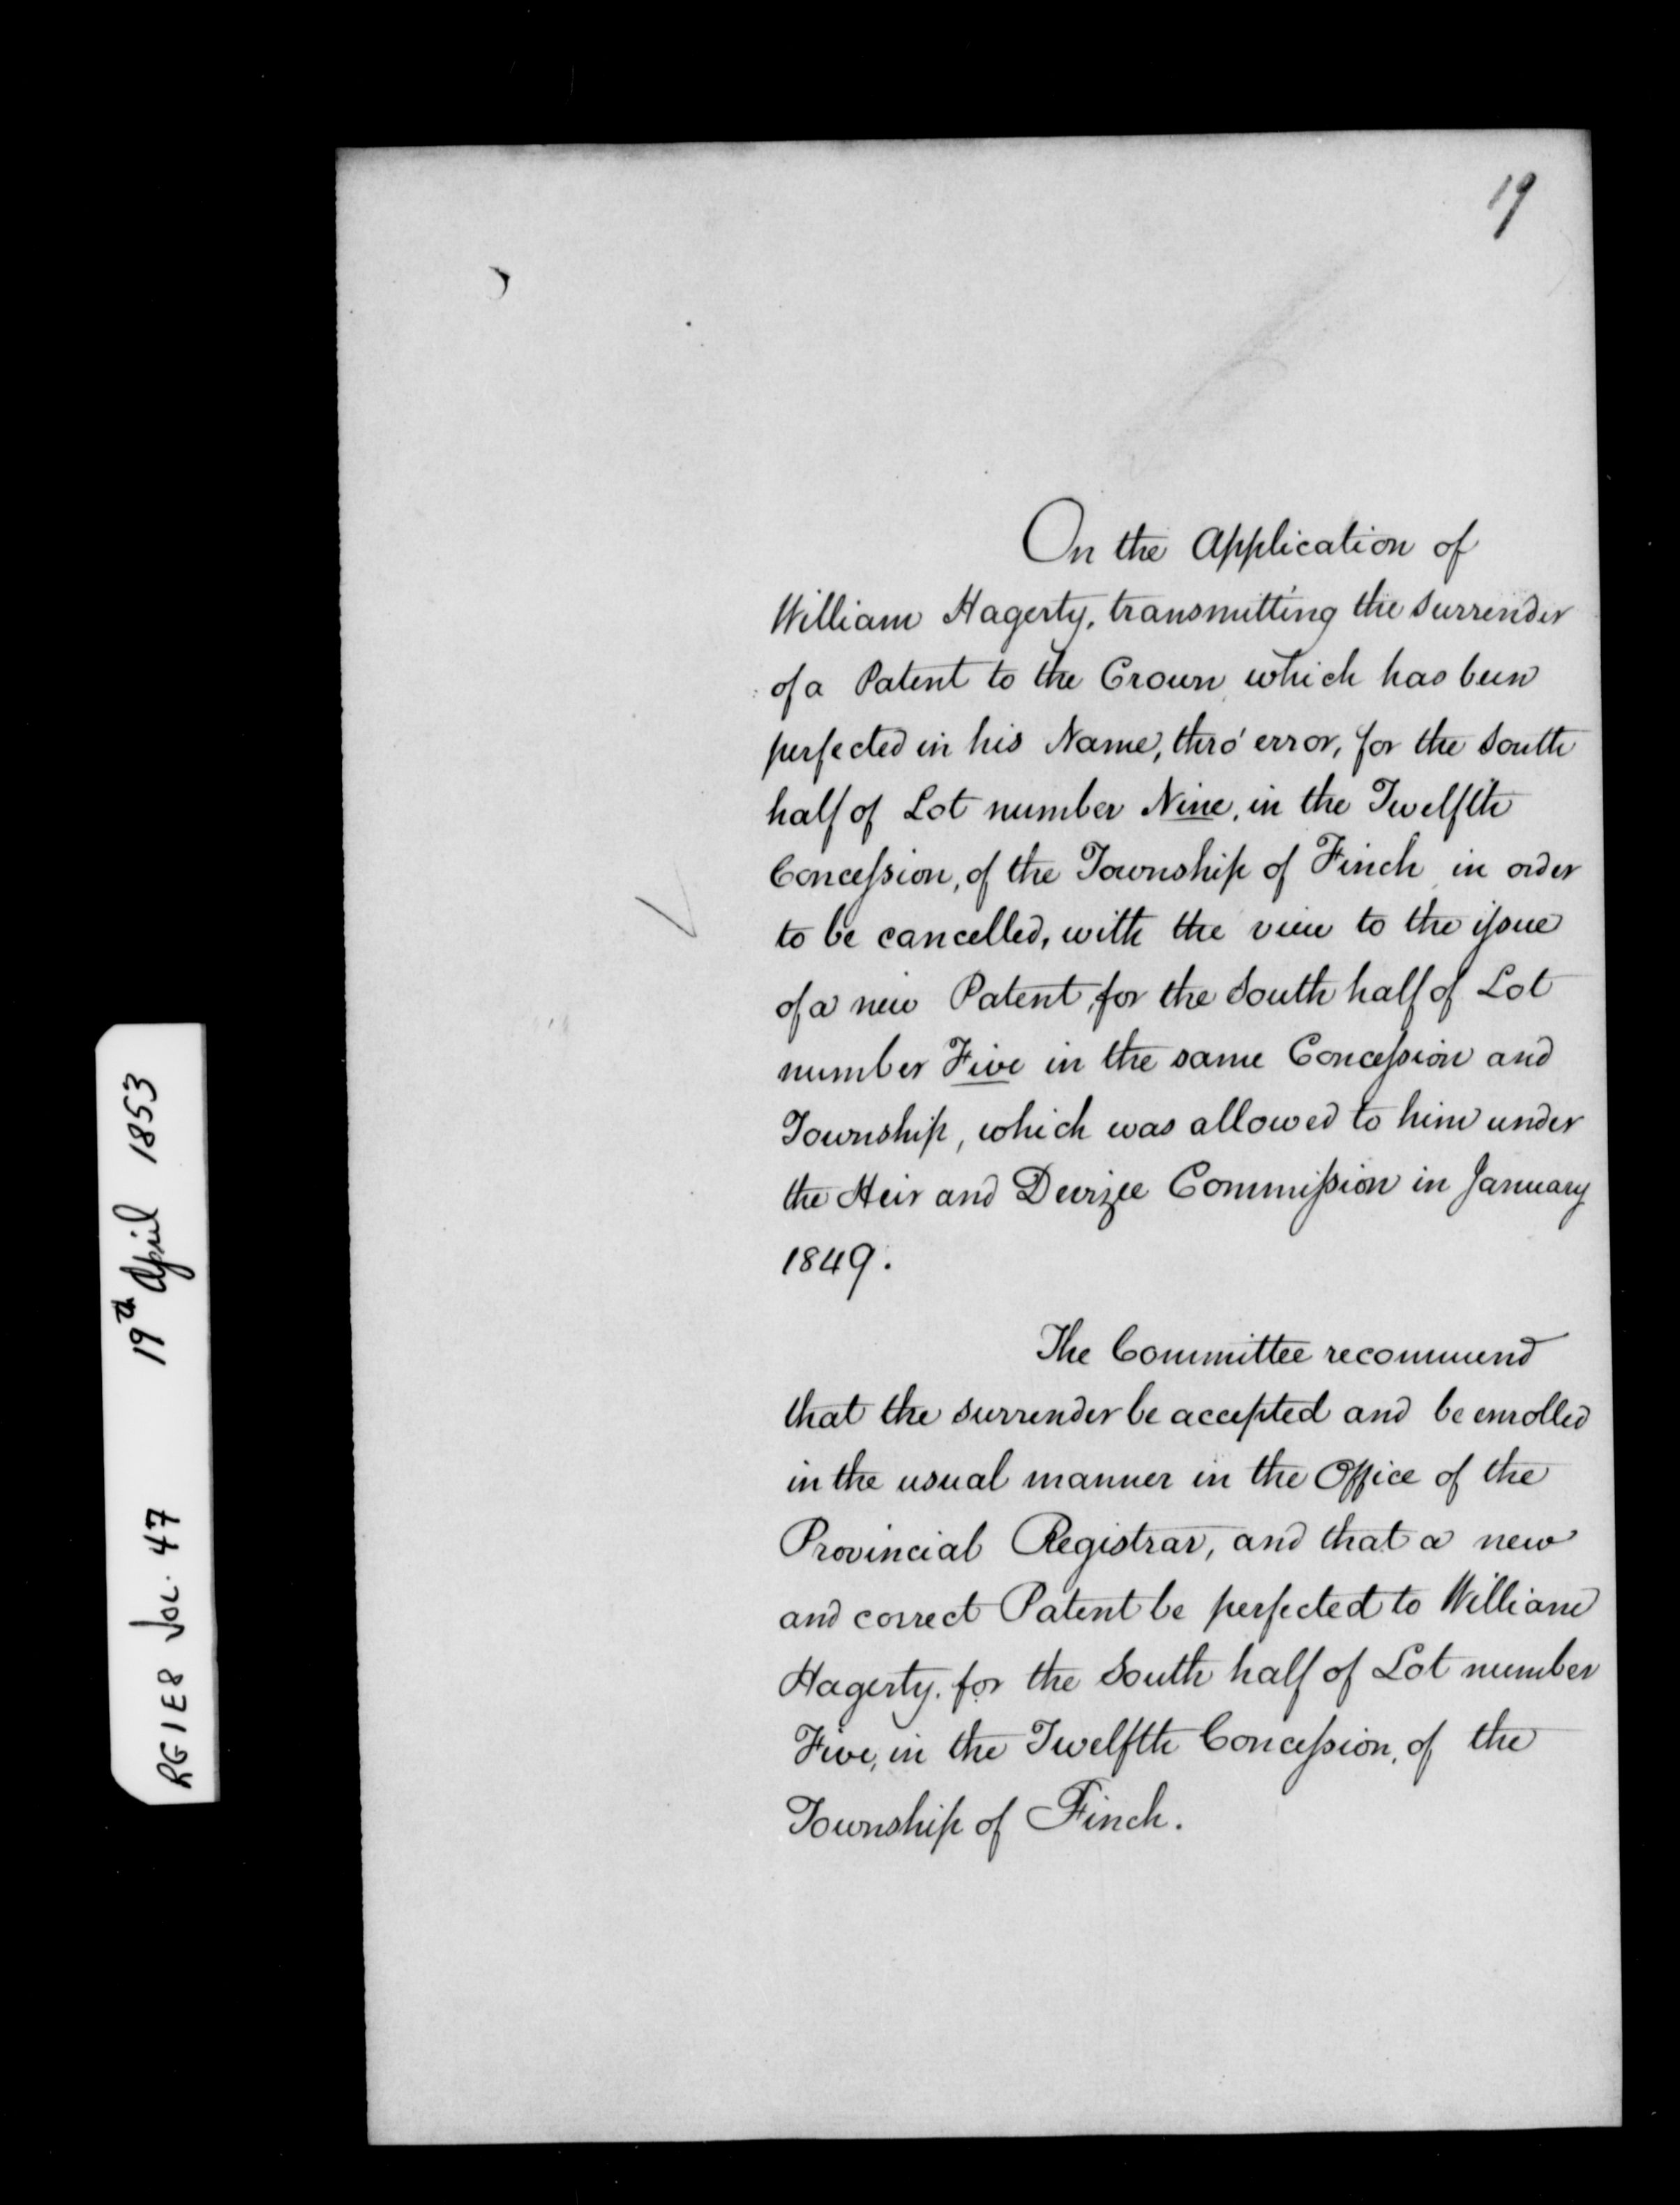 19
On the Application of
William Hagerty, transmitting the surrender
of a Patent to the Crown which has been
perfected in his Name, thro' error, for the South
half of Lot number Nine, in the Twelfth
Concession, of the Township of Finch in order
to be cancelled, with the view to the issue
of a new Patent, for the South half of Lot
number Five in the same Concession and
Township, which was allowed to him under
the Heir and Devizee Commission in January
1849.
The Committee recommend
that the surrender be accepted and be enrolled
in the usual manner in the Office of the
Provincial Registrar, and that a new
and correct Patent be perfected to William
Hagerty, for the South half of Lot number
Five, in the Twelfth Concession, of the
Township of Finch.
RG 1 E8 Vol. 47 19th April 1853